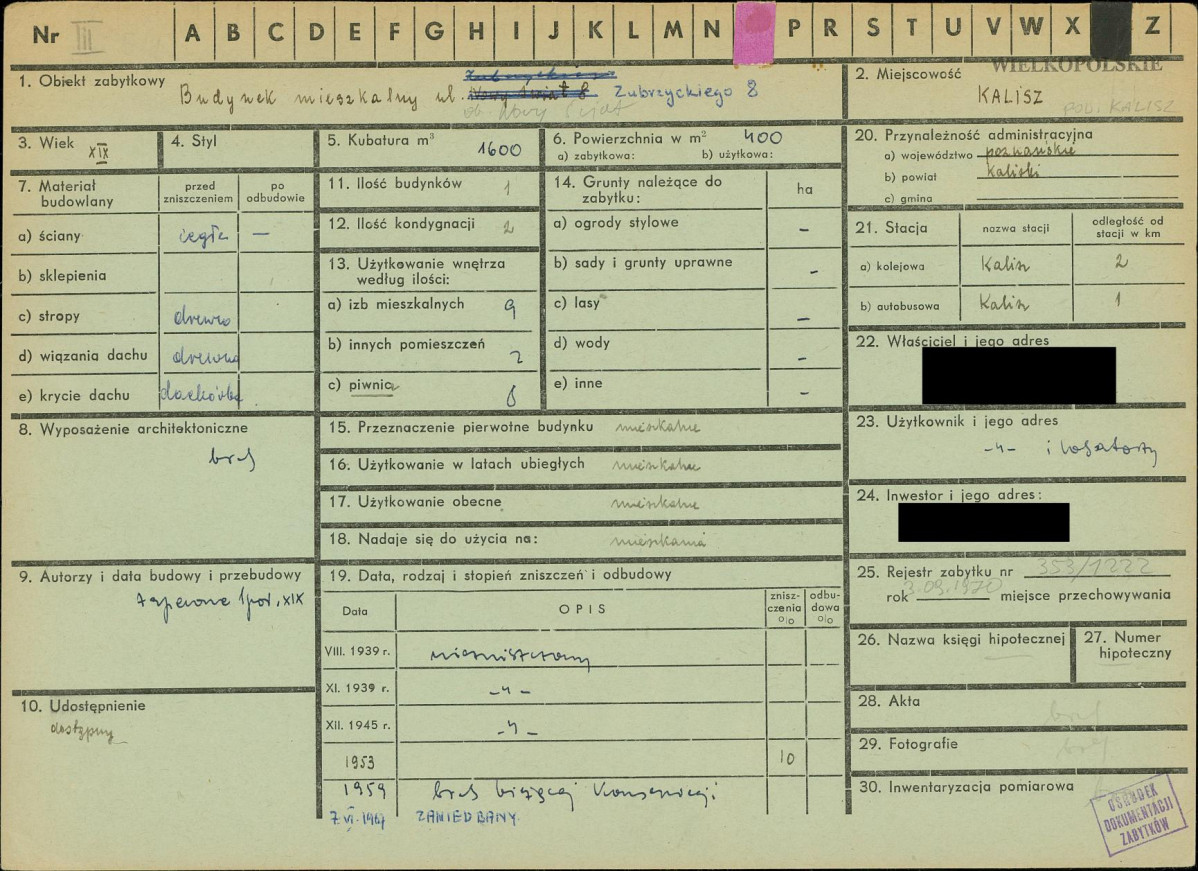 Nr III A B C D E F G H I J K L M N P R S T U V W X Z
WIELKOPOLSKIE
1. Obiekt zabytkowy
Budynek mieszkalny ul. Nowy Świat 8 Zubrzyckiego 8
ob. Nowy Świat
2. Miejscowość
KALISZ
POW. KALISZ
3. Wiek XIX
4. Styl
5. Kubatura m³ 1600
6. Powierzchnia w m² 400
a) zabytkowa: b) użytkowa:
20. Przynależność administracyjna
a) województwo poznańskie
b) powiat kaliski
c) gmina
7. Materiał budowlany
przed zniszczeniem
po odbudowie
a) ściany cegła —
b) sklepienia
c) stropy drewno
d) wiązania dachu drewno
e) krycie dachu dachówka
11. Ilość budynków 1
12. Ilość kondygnacji 2
13. Użytkowanie wnętrza według ilości:
a) izb mieszkalnych 9
b) innych pomieszczeń 2
c) piwnic 8
14. Grunty należące do zabytku: ha
a) ogrody stylowe –
b) sady i grunty uprawne –
c) lasy –
d) wody –
e) inne –
21. Stacja
nazwa stacji
odległość od stacji w km
a) kolejowa Kalisz 2
b) autobusowa Kalisz 1
22. Właściciel i jego adres
8. Wyposażenie architektoniczne
brak
15. Przeznaczenie pierwotne budynku mieszkalne
16. Użytkowanie w latach ubiegłych mieszkalne
17. Użytkowanie obecne mieszkalne
18. Nadaje się do użycia na: mieszkania
23. Użytkownik i jego adres
-"- i lokatorzy
24. Inwestor i jego adres:
9. Autorzy i data budowy i przebudowy
zapewne 1 poł. XIX
19. Data, rodzaj i stopień zniszczeń i odbudowy
Data OPIS znisz-czenia % odbu-dowa %
VIII. 1939 r. niezniszczony
XI. 1939 r. -"-
XII. 1945 r. -"-
1953 10
1959 brak bieżącej konserwacji
7.VI.1967 ZANIEDBANY
25. Rejestr zabytku nr 353/1222
rok 3.09.1970 miejsce przechowywania
26. Nazwa księgi hipotecznej
27. Numer hipoteczny
10. Udostępnienie
dostępny
28. Akta brak
29. Fotografie brak
30. Inwentaryzacja pomiarowa
OŚRODEK
DOKUMENTACJI
ZABYTKÓW